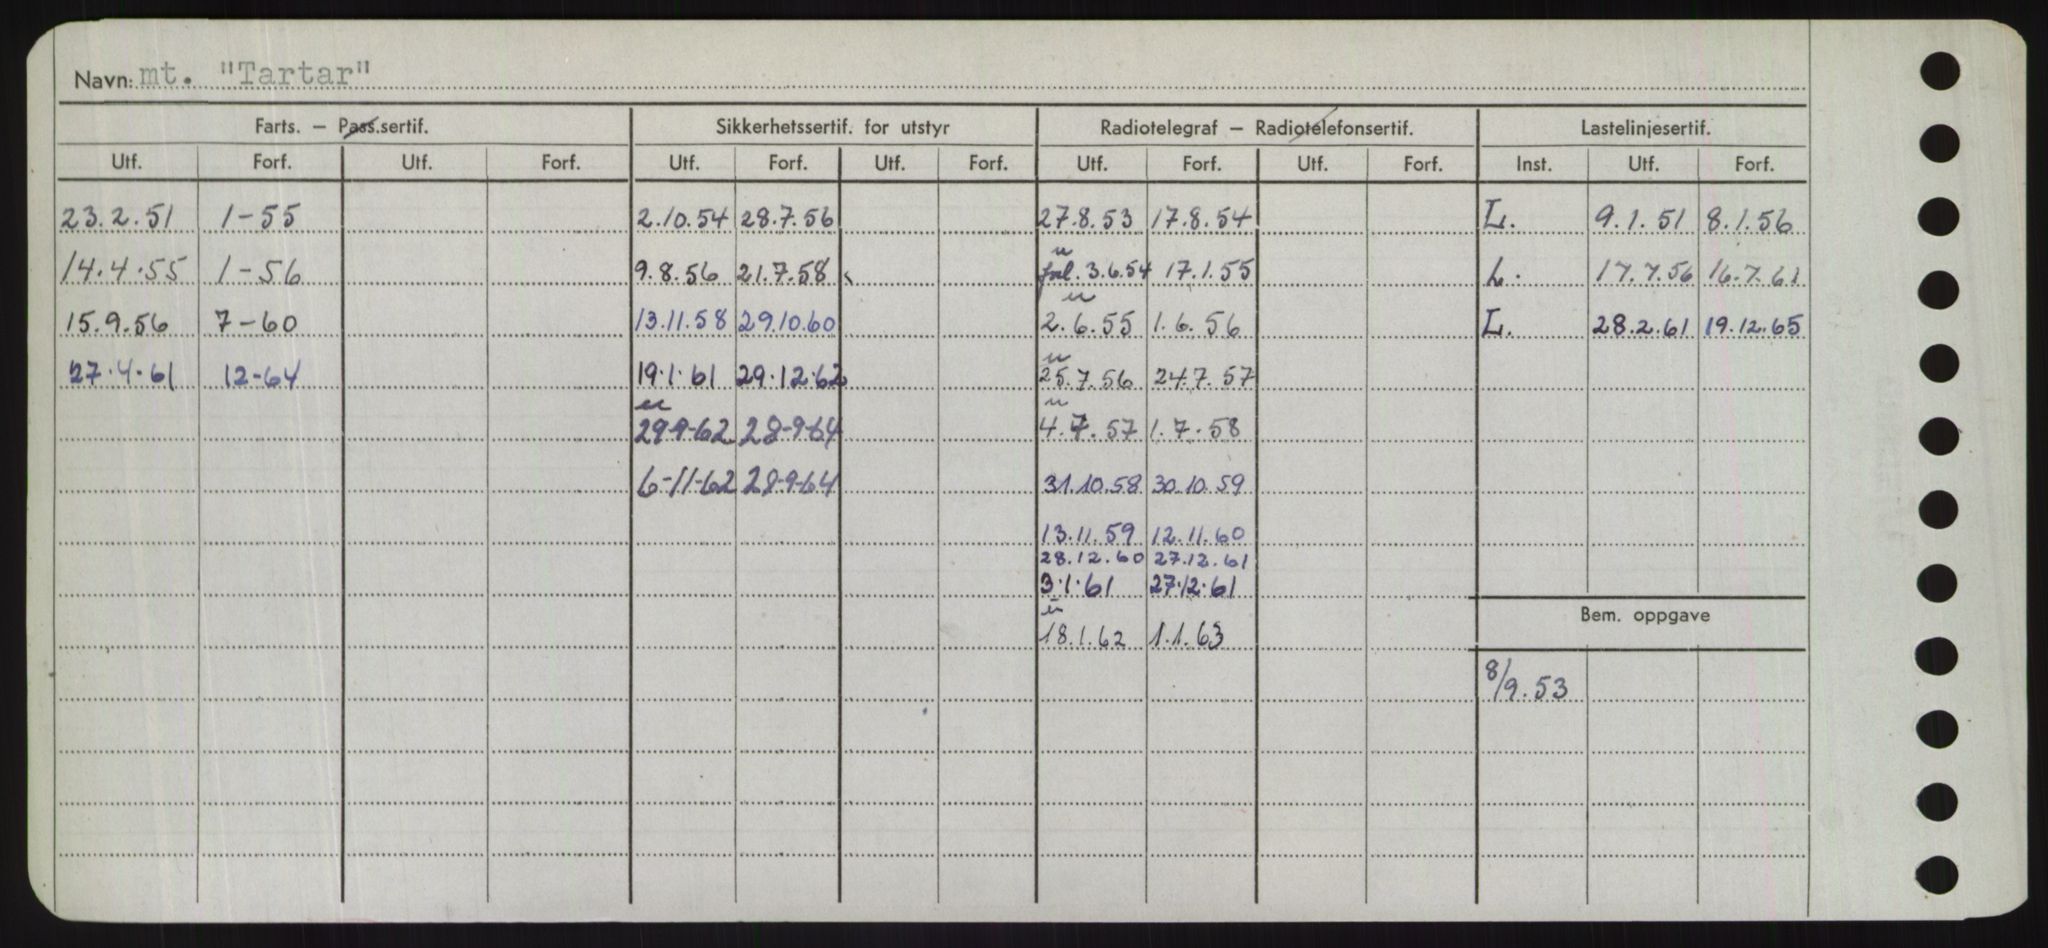 Navn: mt. "Tartar"
Farts. – Pass.sertif. Sikkerhetssertif. for utstyr Radiotelegraf – Radiotelefonsertif. Lastelinjesertif.
Utf. Forf. Utf. Forf. Utf. Forf. Utf. Forf. Utf. Forf. Utf. Forf. Inst. Utf. Forf.
23.2.51 1-55 2.10.54 28.7.56 27.8.53 17.8.54 L. 9.1.51 8.1.56
u
14.4.55 1-56 9.8.56 21.7.58 forl. 3.6.54 17.1.55 L. 17.7.56 16.7.61
u
15.9.56 7-60 13.11.58 29.10.60 2.6.55 1.6.56 L. 28.2.61 19.12.65
u
27.4.61 12-64 19.1.61 29.12.62 25.7.56 24.7.57
u u
29-9-62 28-9-64 4.7.57 1.7.58
6-11-62 28-9-64 31.10.58 30.10.59
13.11.59 12.11.60
28.12.60 27.12.61
3.1.61 27.12.61
u
Bem. oppgave
18.1.62 1.1.63
8/9.53